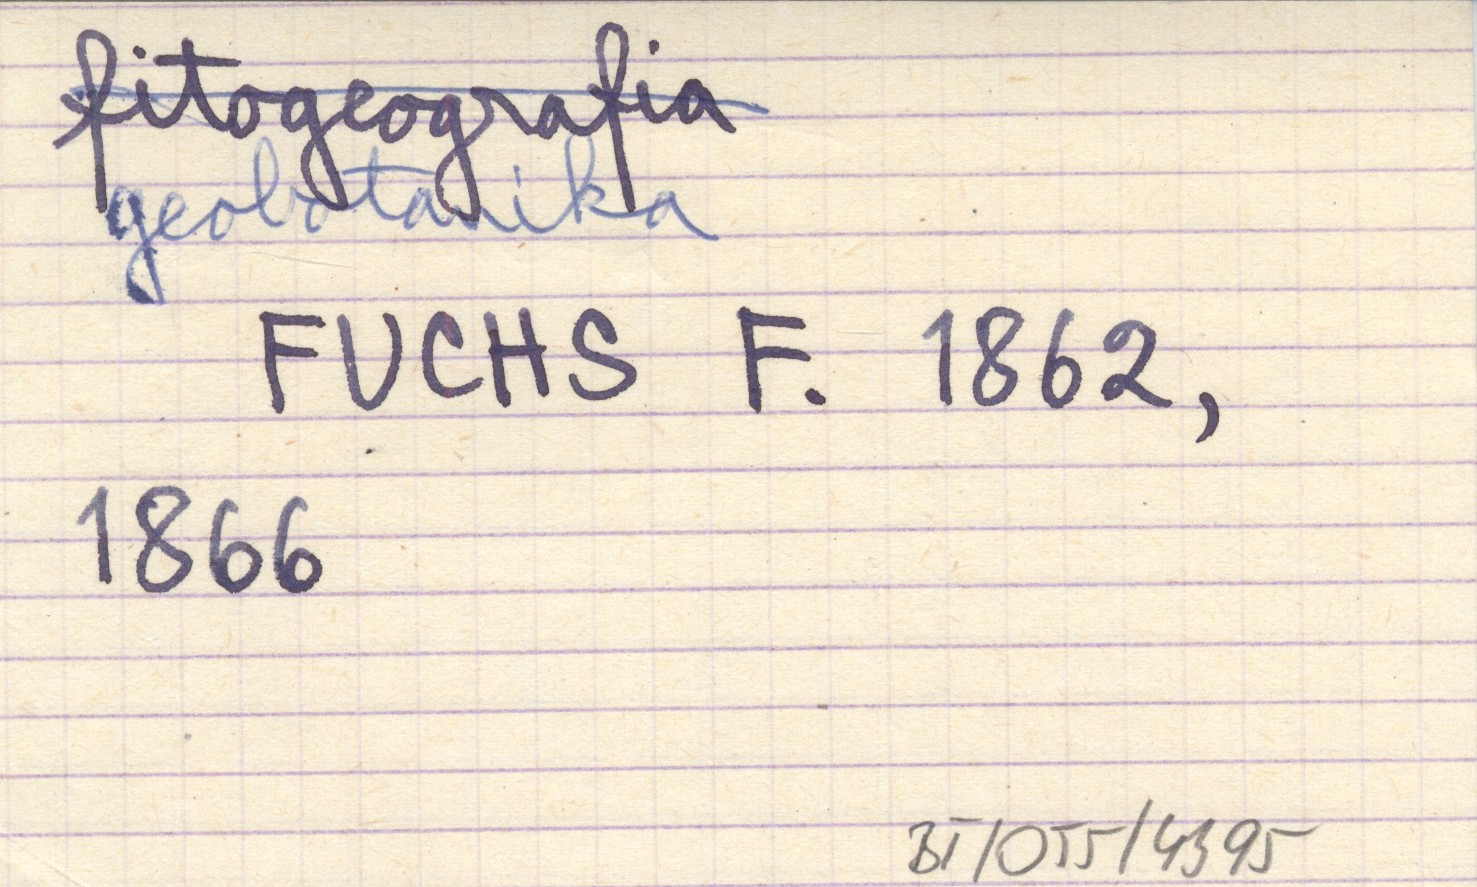 fitogeografia
geobotanika
FUCHS F. 1862,
1866
BI/OT5/4395